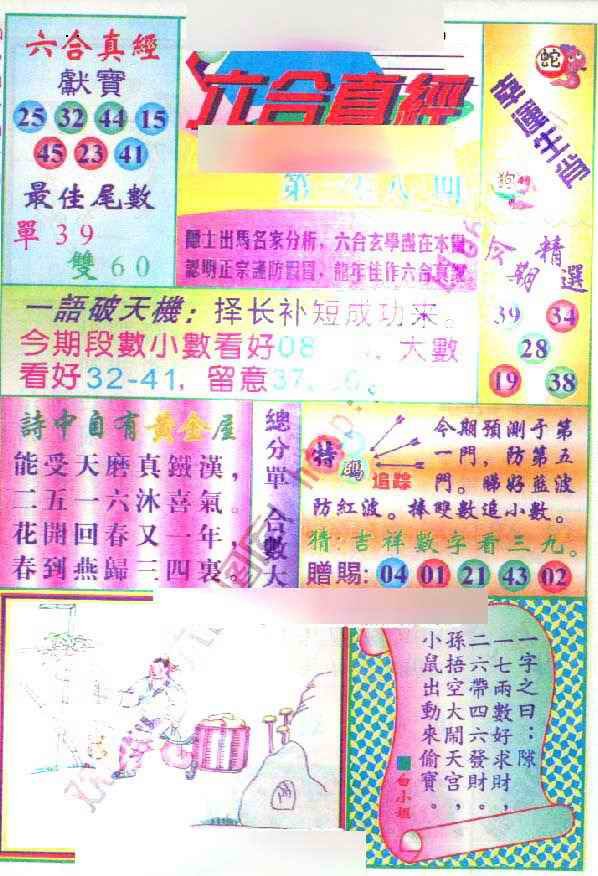 六合真經
獻寶
25 32 44 15
45 23 41
最佳尾數
單39
雙60
六合真經
期
蛇
狗
隱士出馬名家分析，六合玄學盡在本圖
一語破天機：择长补短成功来。
今期段數小數看好08 大數
看好32-41，留意37
今期 精選
39 34
28
19 38
詩中自有黃金屋
能受天磨真鐵漢，
二五一六沐喜氣。
花開回春又一年，
春到燕歸三四裏。
總分單 合數大
特碼
追踪
今期預測于第
一門，防第五
門。睇好藍波
防紅波。捧雙數追小數。
猜：吉祥數字看三九。
贈賜：04 01 21 43 02
一字之曰：隙
一七兩數好求財，
二六帶四六發財。
孫悟空大鬧天宮，
小鼠出動來偷寶。
白小姐